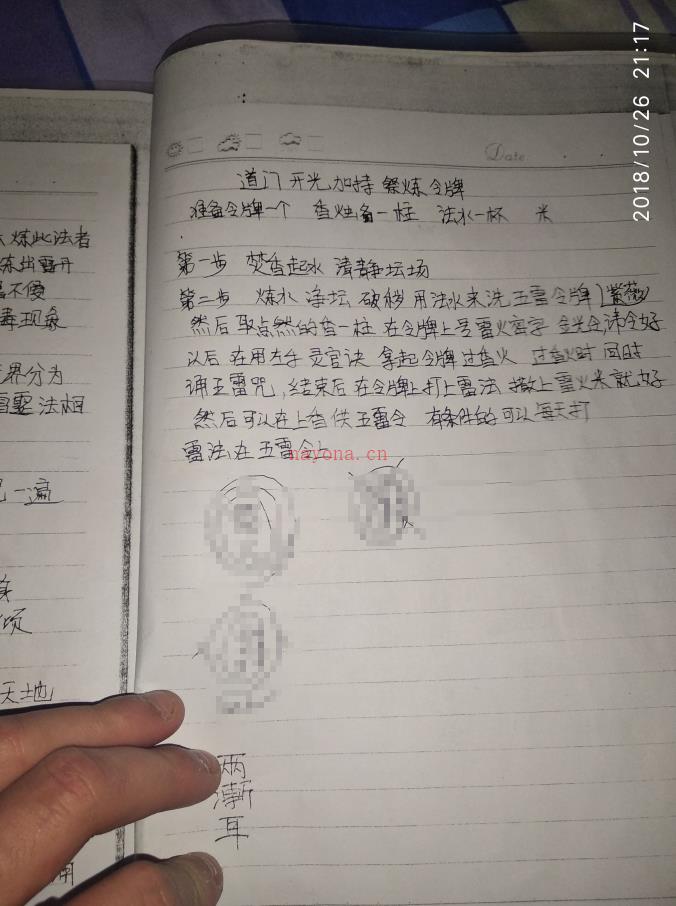 2018/10/26 21:17
Date
道门 开光 加持 祭炼 令牌
准备令牌一个 香烛备一柱 法水一杯 米
第一步 焚香起水 清静坛场
第二步 炼水 净坛 破秽 用法水来洗 五雷令牌 (紫薇)
然后 取点然的香一柱 在令牌上 雷火 字 金光 令
以后 在用左手 灵官诀 拿起令牌 过香火 过香火时 同时
诵五雷咒,结束后 在令牌上打上雷法 撒上雷火米 就好
然后可以在上香供五雷令 有条件的可以每天打
雷法在五雷令上
nayona.cn
炼此法者
不傻
现象
界分为
法相
一遍
天地
两
渐
耳